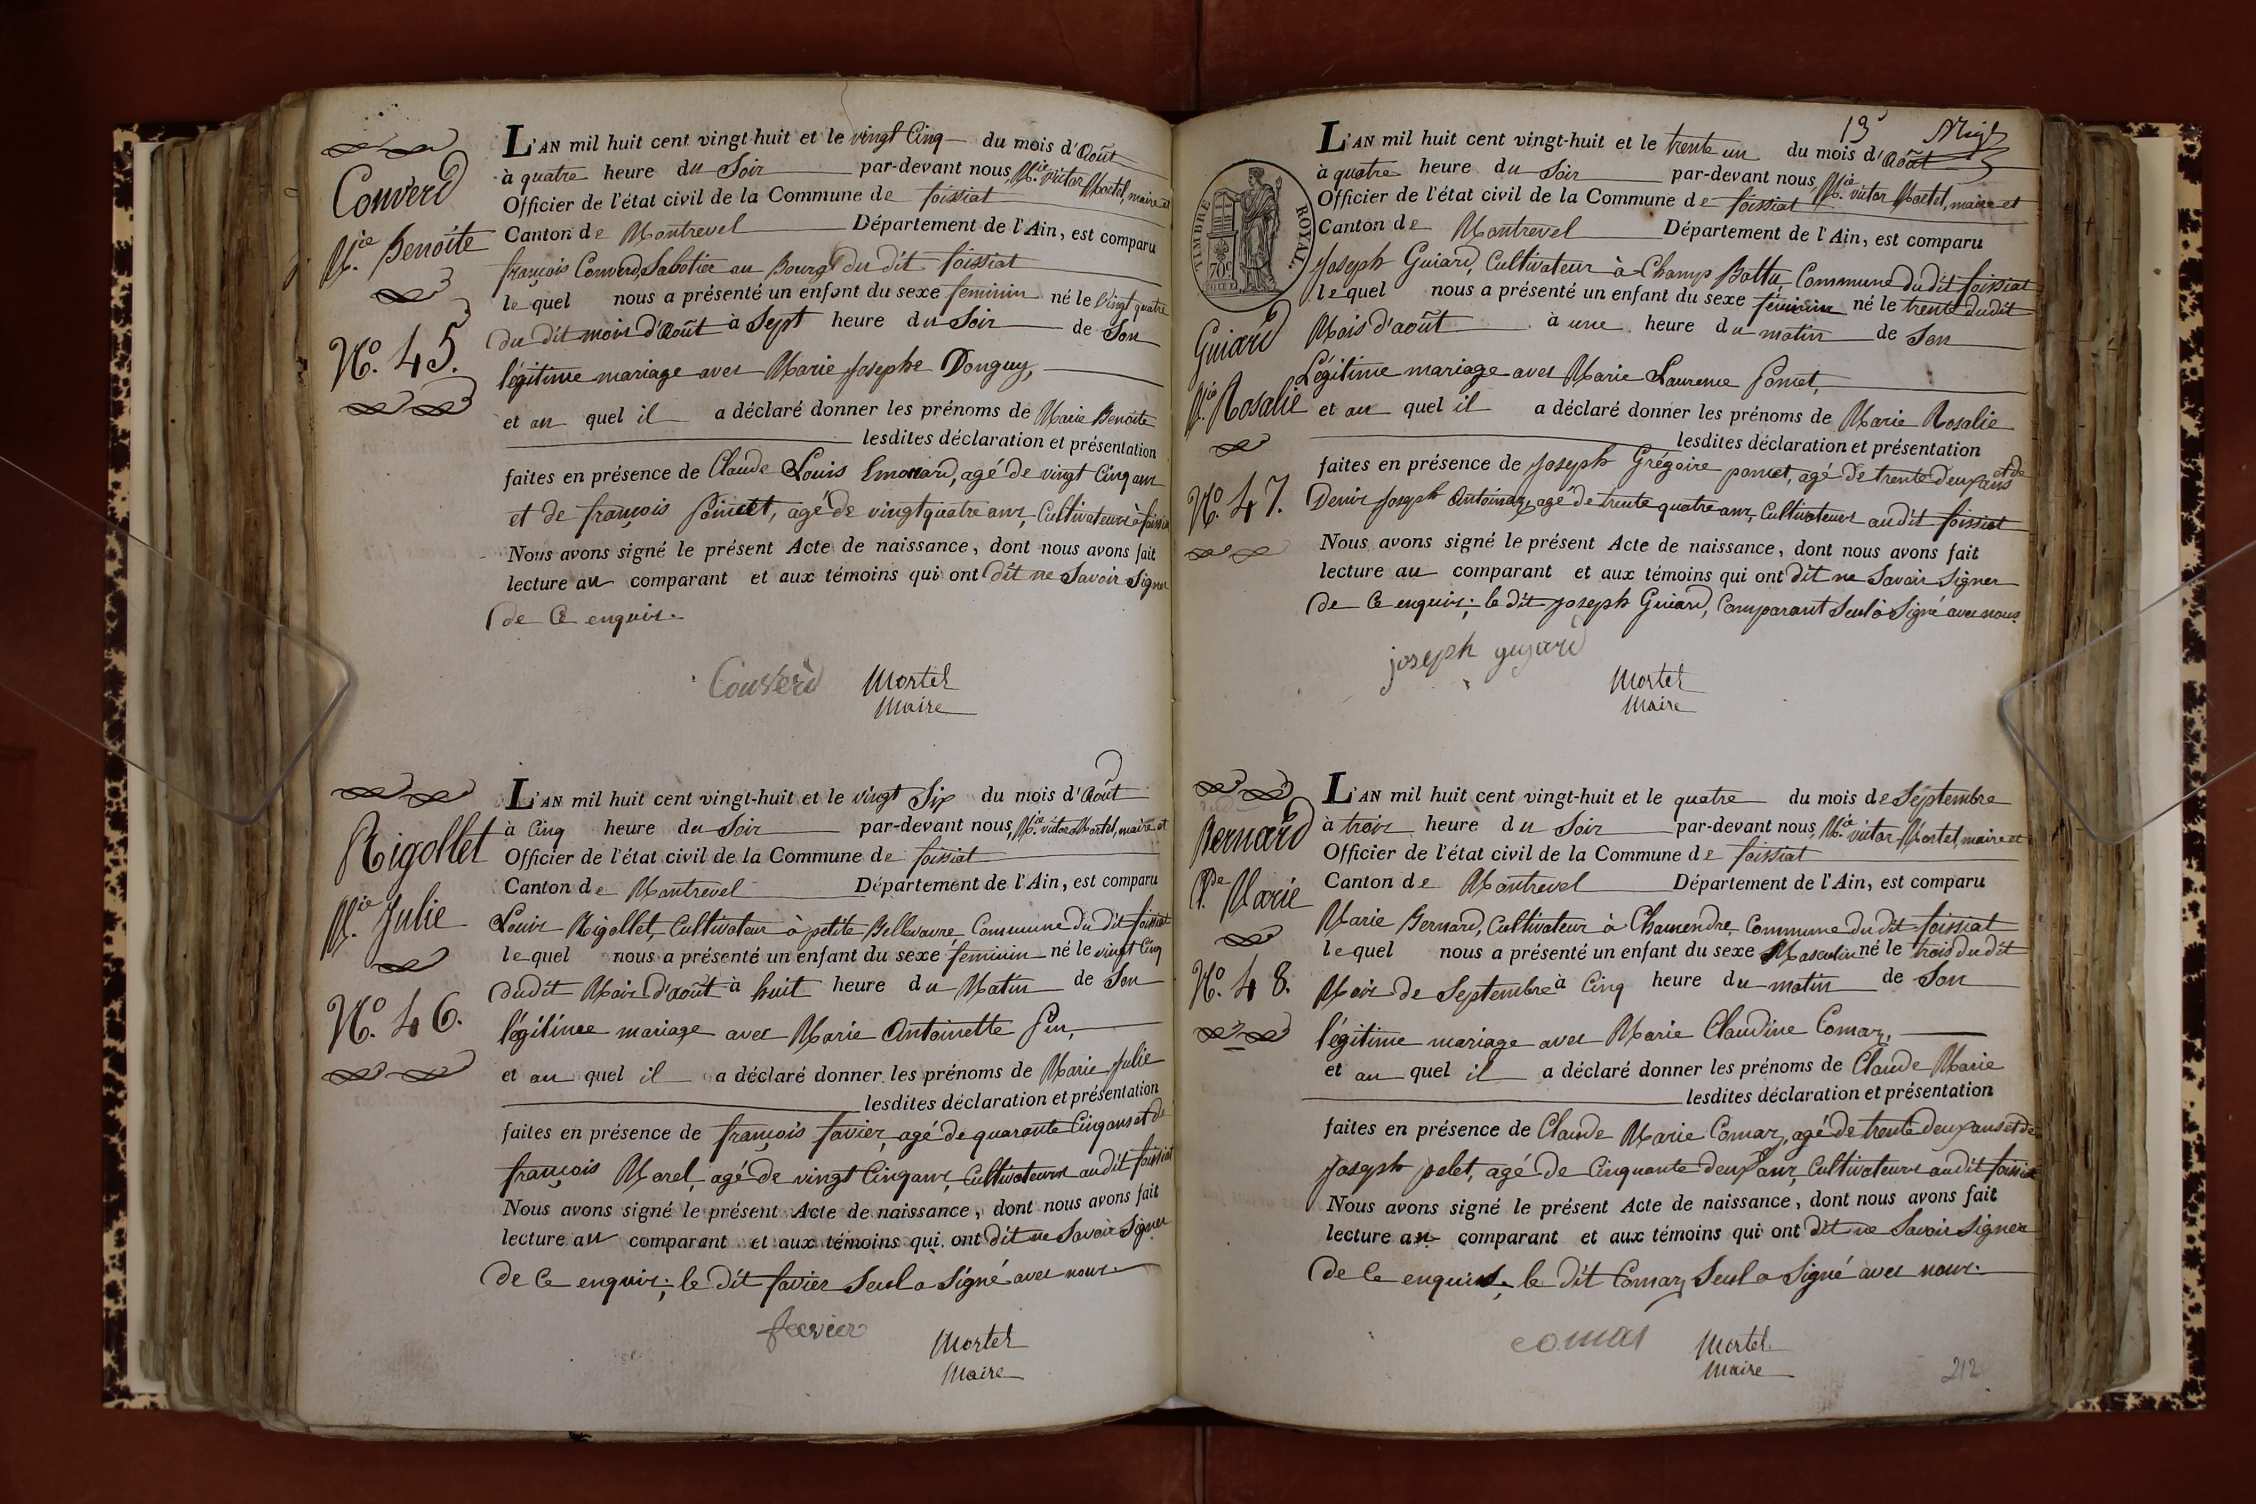 Converd
M.ie Benoite
N.o 45.
L'AN mil huit cent vingt-huit et le vingt Cinq du mois d'Août
à quatre heure du Soir par-devant nous, M.ie victor Mortel, maire et
Officier de l'état civil de la Commune de foissiat
Canton de Montrevel Département de l'Ain, est comparu
françois Converd, Sabotier au Bourg du dit foissiat
lequel nous a présenté un enfant du sexe feminin né le Vingt quatre
du dit mois d'Août à Sept heure du Soir de Son
légitime mariage avec Marie Josephe Donguy,
et au quel il a déclaré donner les prénoms de Marie Benoite
lesdites déclaration et présentation
faites en présence de Claude Louis Emonard, agé de vingt Cinq ans
et de françois Pomet, agé de vingt quatre ans, Cultivateurs à foissiat
Nous avons signé le présent Acte de naissance, dont nous avons fait
lecture au comparant et aux témoins qui ont dit ne Savoir Signer
de Ce enquis.
Convèrd Mortel
Maire
Rigollet
M.ie Julie
N.o 46.
L'AN mil huit cent vingt-huit et le vingt Six du mois d'Août
à Cinq heure du Soir par-devant nous, M.ie victor Mortel, maire et
Officier de l'état civil de la Commune de foissiat
Canton de Montrevel Département de l'Ain, est comparu
Louis Rigollet, Cultivateur à petite Bellevavre Commune du dit foissiat
lequel nous a présenté un enfant du sexe feminin né le vingt Cinq
dudit Mois d'août à huit heure du Matin de Son
légitime mariage avec Marie Antoinette Pin,
et au quel il a déclaré donner les prénoms de Marie Julie
lesdites déclaration et présentation
faites en présence de françois favier, agé de quarante Cinq ans et de
françois Morel, agé de vingt Cinq ans, Cultivateurs au dit foissiat
Nous avons signé le présent Acte de naissance, dont nous avons fait
lecture au comparant et aux témoins qui ont dit ne Savoir Signer
de Ce enquis; le dit favier Seul a Signé avec nous.
favier Mortel
Maire
19
TIMBRE ROYAL.
70c
Guiard
M.ie Rosalie
N.o 47.
L'AN mil huit cent vingt-huit et le trente un du mois d'Août
à quatre heure du Soir par-devant nous, M.ie victor Mortel, maire et
Officier de l'état civil de la Commune de foissiat
Canton de Montrevel Département de l'Ain, est comparu
Joseph Guiard, Cultivateur à Champ Battu, Commune du dit foissiat
lequel nous a présenté un enfant du sexe féminin né le trente dudit
Mois d'août à une heure du matin de Son
Légitime mariage avec Marie Laurence Pomet,
et au quel il a déclaré donner les prénoms de Marie Rosalie
lesdites déclaration et présentation
faites en présence de Joseph Grégoire pomet, agé de trente deux ans et de
Denis Joseph Antoinaz, agé de trente quatre ans, Cultivateurs au dit foissiat
Nous avons signé le présent Acte de naissance, dont nous avons fait
lecture au comparant et aux témoins qui ont dit ne Savoir Signer
de Ce enquis; le dit Joseph Guiard, Comparant Seul à Signé avec nous
joseph guyard
Mortel
Maire
Bernard
C.de Marie
N.o 48.
L'AN mil huit cent vingt-huit et le quatre du mois de Septembre
à trois heure du Soir par-devant nous, M.ie victor Mortel, maire et
Officier de l'état civil de la Commune de foissiat
Canton de Montrevel Département de l'Ain, est comparu
Marie Bernard, Cultivateur à Chamendre, Commune du dit foissiat
lequel nous a présenté un enfant du sexe Masculin né le trois du dit
Mois de Septembre à Cinq heure du matin de Son
légitime mariage avec Marie Claudine Comaz,
et au quel il a déclaré donner les prénoms de Claude Marie
lesdites déclaration et présentation
faites en présence de Claude Marie Comaz, agé de trente deux ans et de
Joseph pelet, agé de Cinquante deux ans, Cultivateurs au dit foissiat
Nous avons signé le présent Acte de naissance, dont nous avons fait
lecture au comparant et aux témoins qui ont dit ne Savoir Signer
de Ce enquis; le dit Comaz Seul a Signé avec nous.
comas Mortel
Maire
212